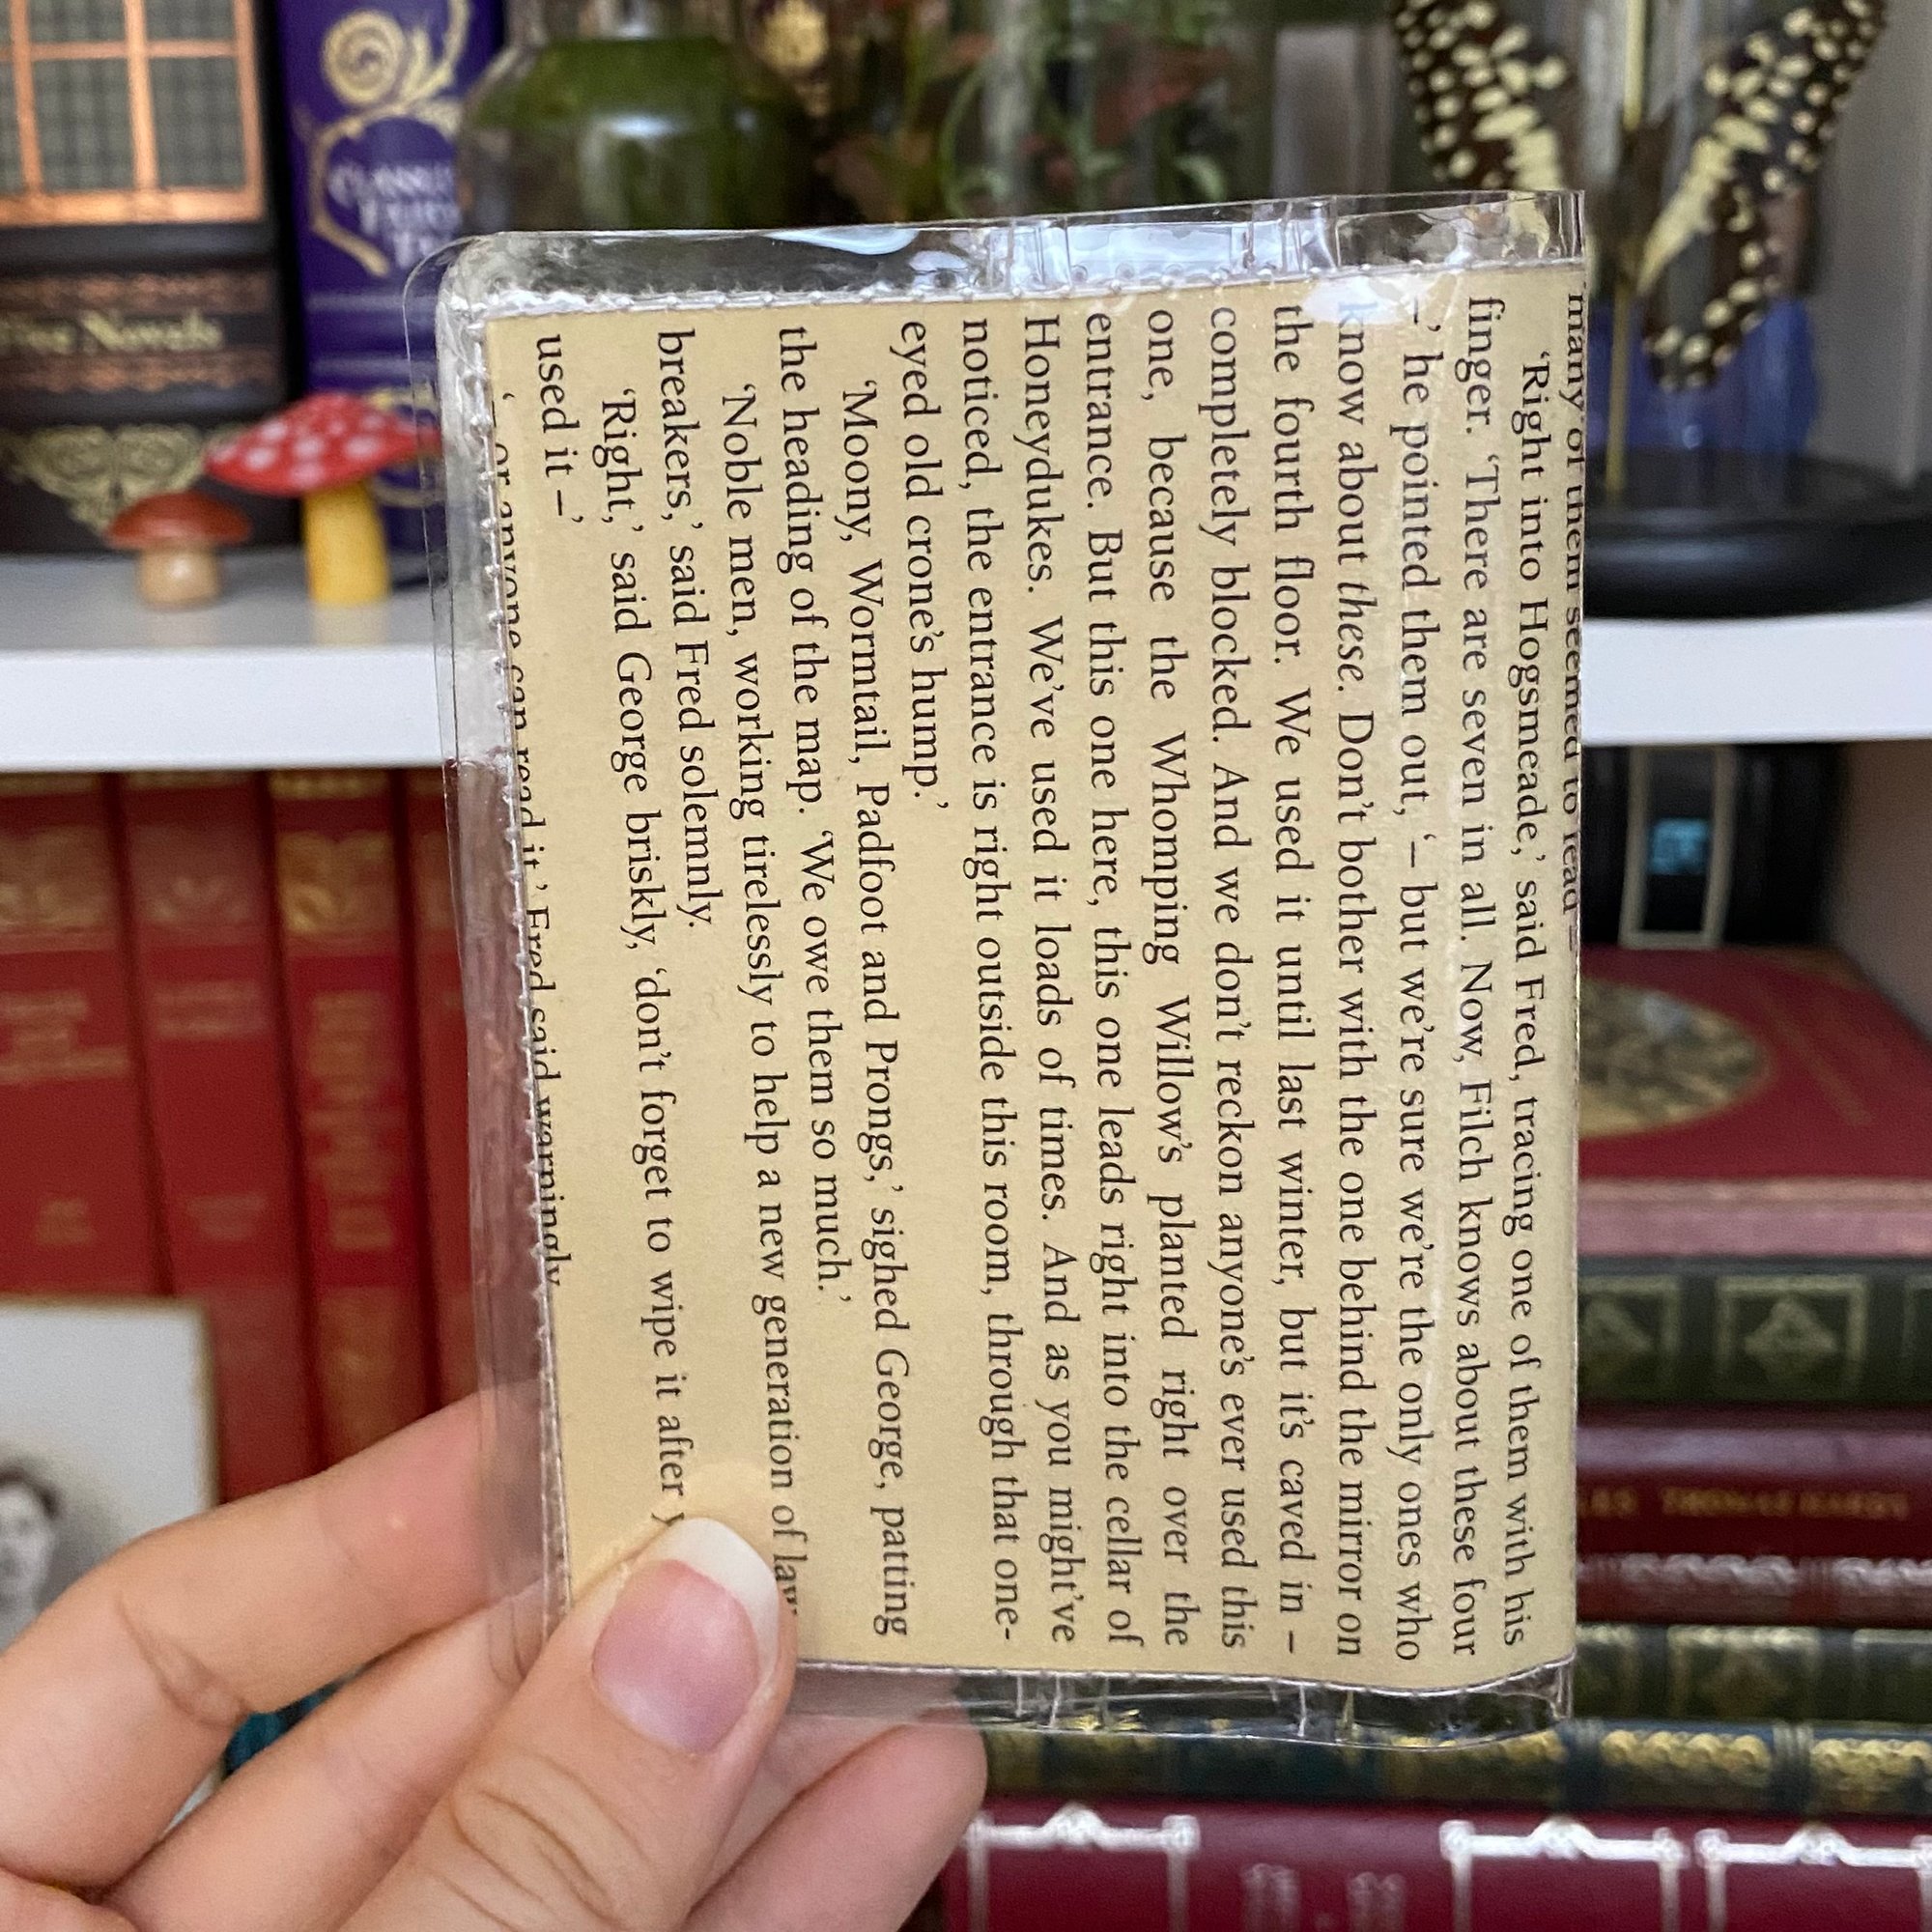 many of them seemed to lead –
‘Right into Hogsmeade,’ said Fred, tracing one of them with his
finger. ‘There are seven in all. Now, Filch knows about these four
–’ he pointed them out, ‘– but we’re sure we’re the only ones who
know about these. Don’t bother with the one behind the mirror on
the fourth floor. We used it until last winter, but it’s caved in –
completely blocked. And we don’t reckon anyone’s ever used this
one, because the Whomping Willow’s planted right over the
entrance. But this one here, this one leads right into the cellar of
Honeydukes. We’ve used it loads of times. And as you might’ve
noticed, the entrance is right outside this room, through that one-
eyed old crone’s hump.’
‘Moony, Wormtail, Padfoot and Prongs,’ sighed George, patting
the heading of the map. ‘We owe them so much.’
‘Noble men, working tirelessly to help a new generation of law
breakers,’ said Fred solemnly.
‘Right,’ said George briskly, ‘don’t forget to wipe it after
used it –’
‘– or anyone can read it,’ Fred said warningly.
Novels
CLASSIC
FAIRY
THOMAS HARDY